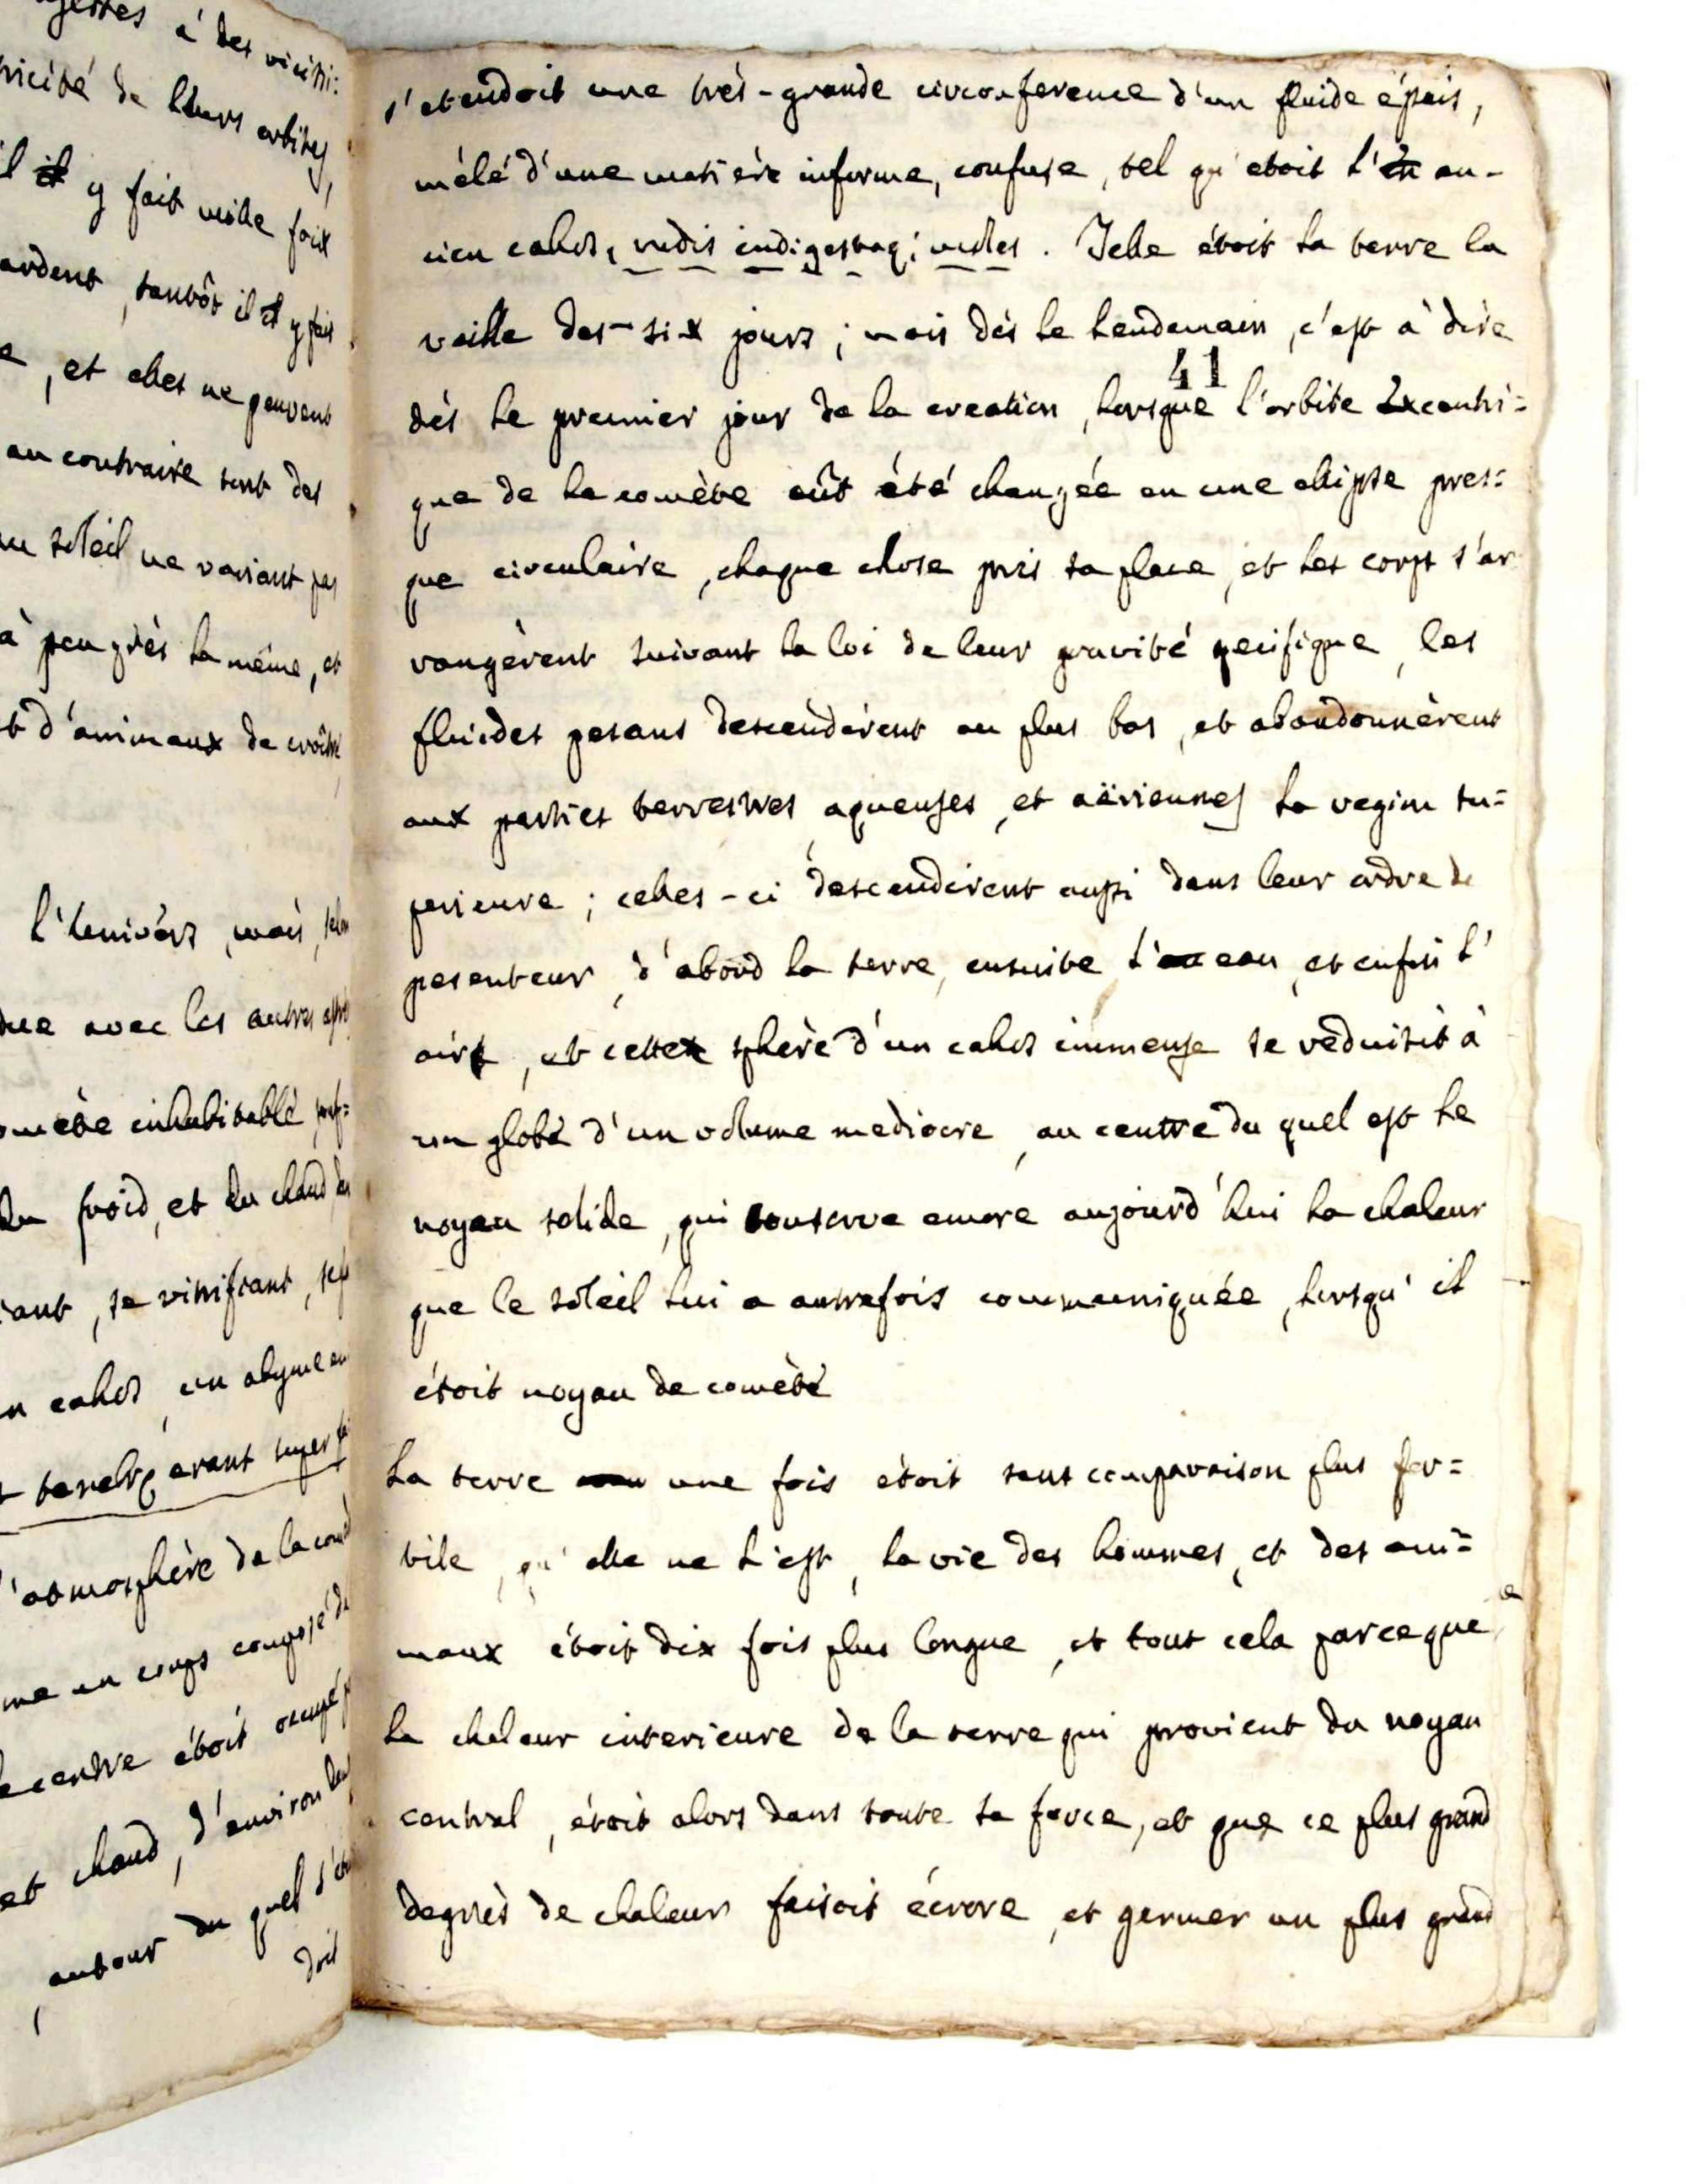 ugettes à des vicissi:
tricité de leurs orbites,
il y fait mille fois
ardent, tantôt il y fait
e, et elles ne peuvent
au contraire sont des
au soleil ne variant pas
à peu près la même, et
et d'animaux de croître
l'univérs, mais, selon
due avec les autres
omète inhabitablé
du froid, et du chaud
iant, se vitrifiant,
un cahos, un abyme en
tenebrę erant super
l'atmosphère de la com
me un corps composé d
le centre étoit occupé
et chaud, d'environ
autour du quel s'eten
doit
s'etendoit une très-grande circonference d'un fluide épais,
mélé d'une matière informe, confuse, tel qu'etoit l'an-
cien cahos, rudis indigestaq; moles. Telle étoit la terre la
veille des six jours; mais dès le lendemain, c'est à dire
41
dès le premier jour de la creation, lorsque l'orbite excentri=
que de la comète eût été changée en une elipse pres=
que circulaire, chaque chose pris sa place, et les corps s'ar
rangèrent suivant la loi de leur gravité specifique, les
fluides pesans descendèrent au plus bas, et abandonnèrent
aux parties terrestres, aqueuses, et aëriennes la region su=
perieure; celles-ci descendirent aussi dans leur ordre de
pesenteur, d'abord la terre, ensuite l'eau, et enfin l'
air, et cette sphère d'un cahos immense se reduisit à
un globe d'un volume mediocre, au centre du quel est le
noyau solide, qui conserve encore aujourd'hui la chaleur
que le soleil lui a autrefois communiquée, lorsqu'il
étoit noyau de comète
La terre une fois étoit sans comparaison plus fer=
tile, qu'elle ne l'est, la vie des hommes, et des ani=
maux étoit dix fois plus longue, et tout cela parceque
la chaleur interieure de la terre qui provient du noyau
central, étoit alors dans toute sa force, et que ce plus grand
degrès de chaleur faisoit écrore, et germer un plus grand